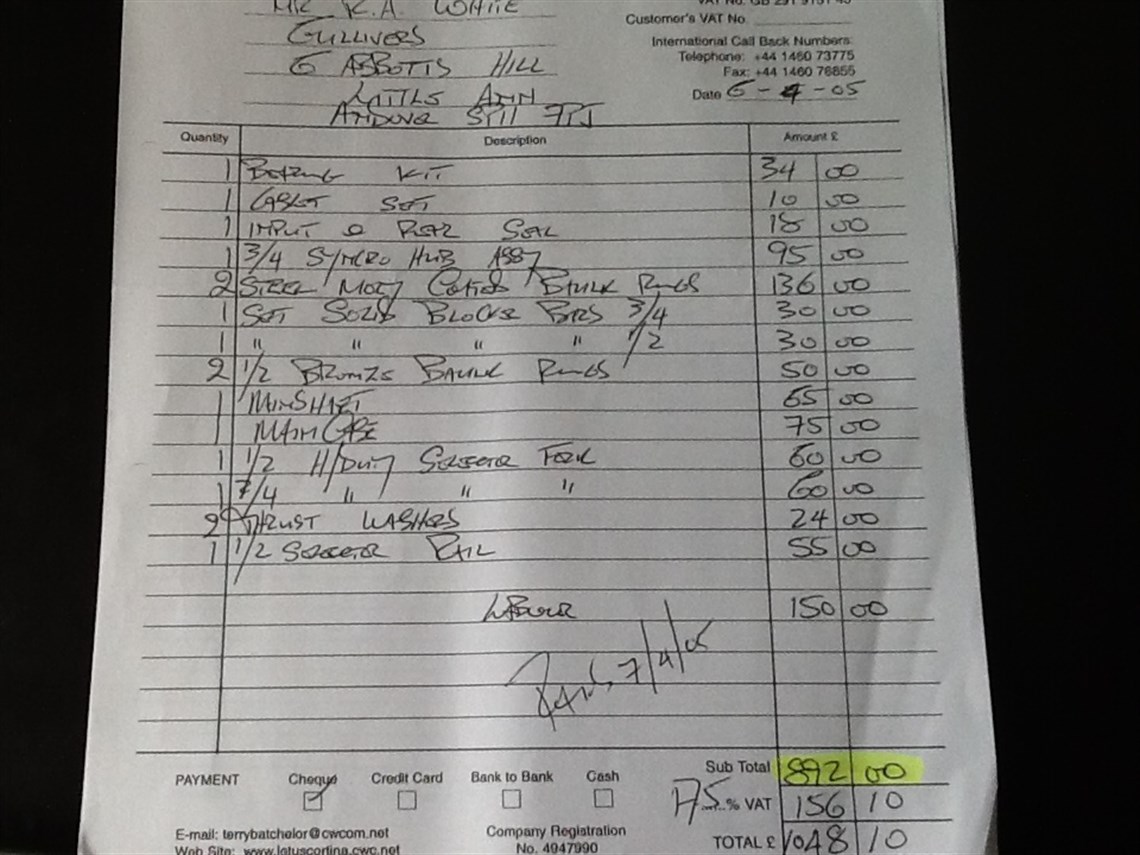 MR K.A. WHITE
GULLIVERS
6 ABBOTTS HILL
LITTLE ANN
ANDOVER SP11 7PJ
Customer's VAT No.
International Call Back Numbers:
Telephone: +44 1460 73775
Fax: +44 1460 76855
Date 6-4-05
Quantity Description Amount £
1 BEARING KIT 34 00
1 GASKET SET 10 00
1 INPUT & REAR SEAL 18 00
1 3/4 SYNCRO HUB ASSY 95 00
2 STEEL MOLY COATED BAULK RINGS 136 00
1 SET SOLID BLOCKER BARS 3/4 30 00
1 " " " " 1/2 30 00
2 1/2 BRONZE BAULK RINGS 50 00
1 MAINSHAFT 65 00
1 MAINCASE 75 00
1 1/2 H/DUTY SELECTOR FORK 60 00
1 3/4 " " " 60 00
2 THRUST WASHERS 24 00
1 1/2 SELECTOR RAIL 55 00
LABOUR 150 00
7/4/05
PAYMENT Cheque Credit Card Bank to Bank Cash
Sub Total 892 00
17.5 % VAT 156 10
TOTAL £ 1048 10
E-mail: terrybatchelor@cwcom.net
Web Site: www.lotuscortina.cwc.net
Company Registration
No. 4947990